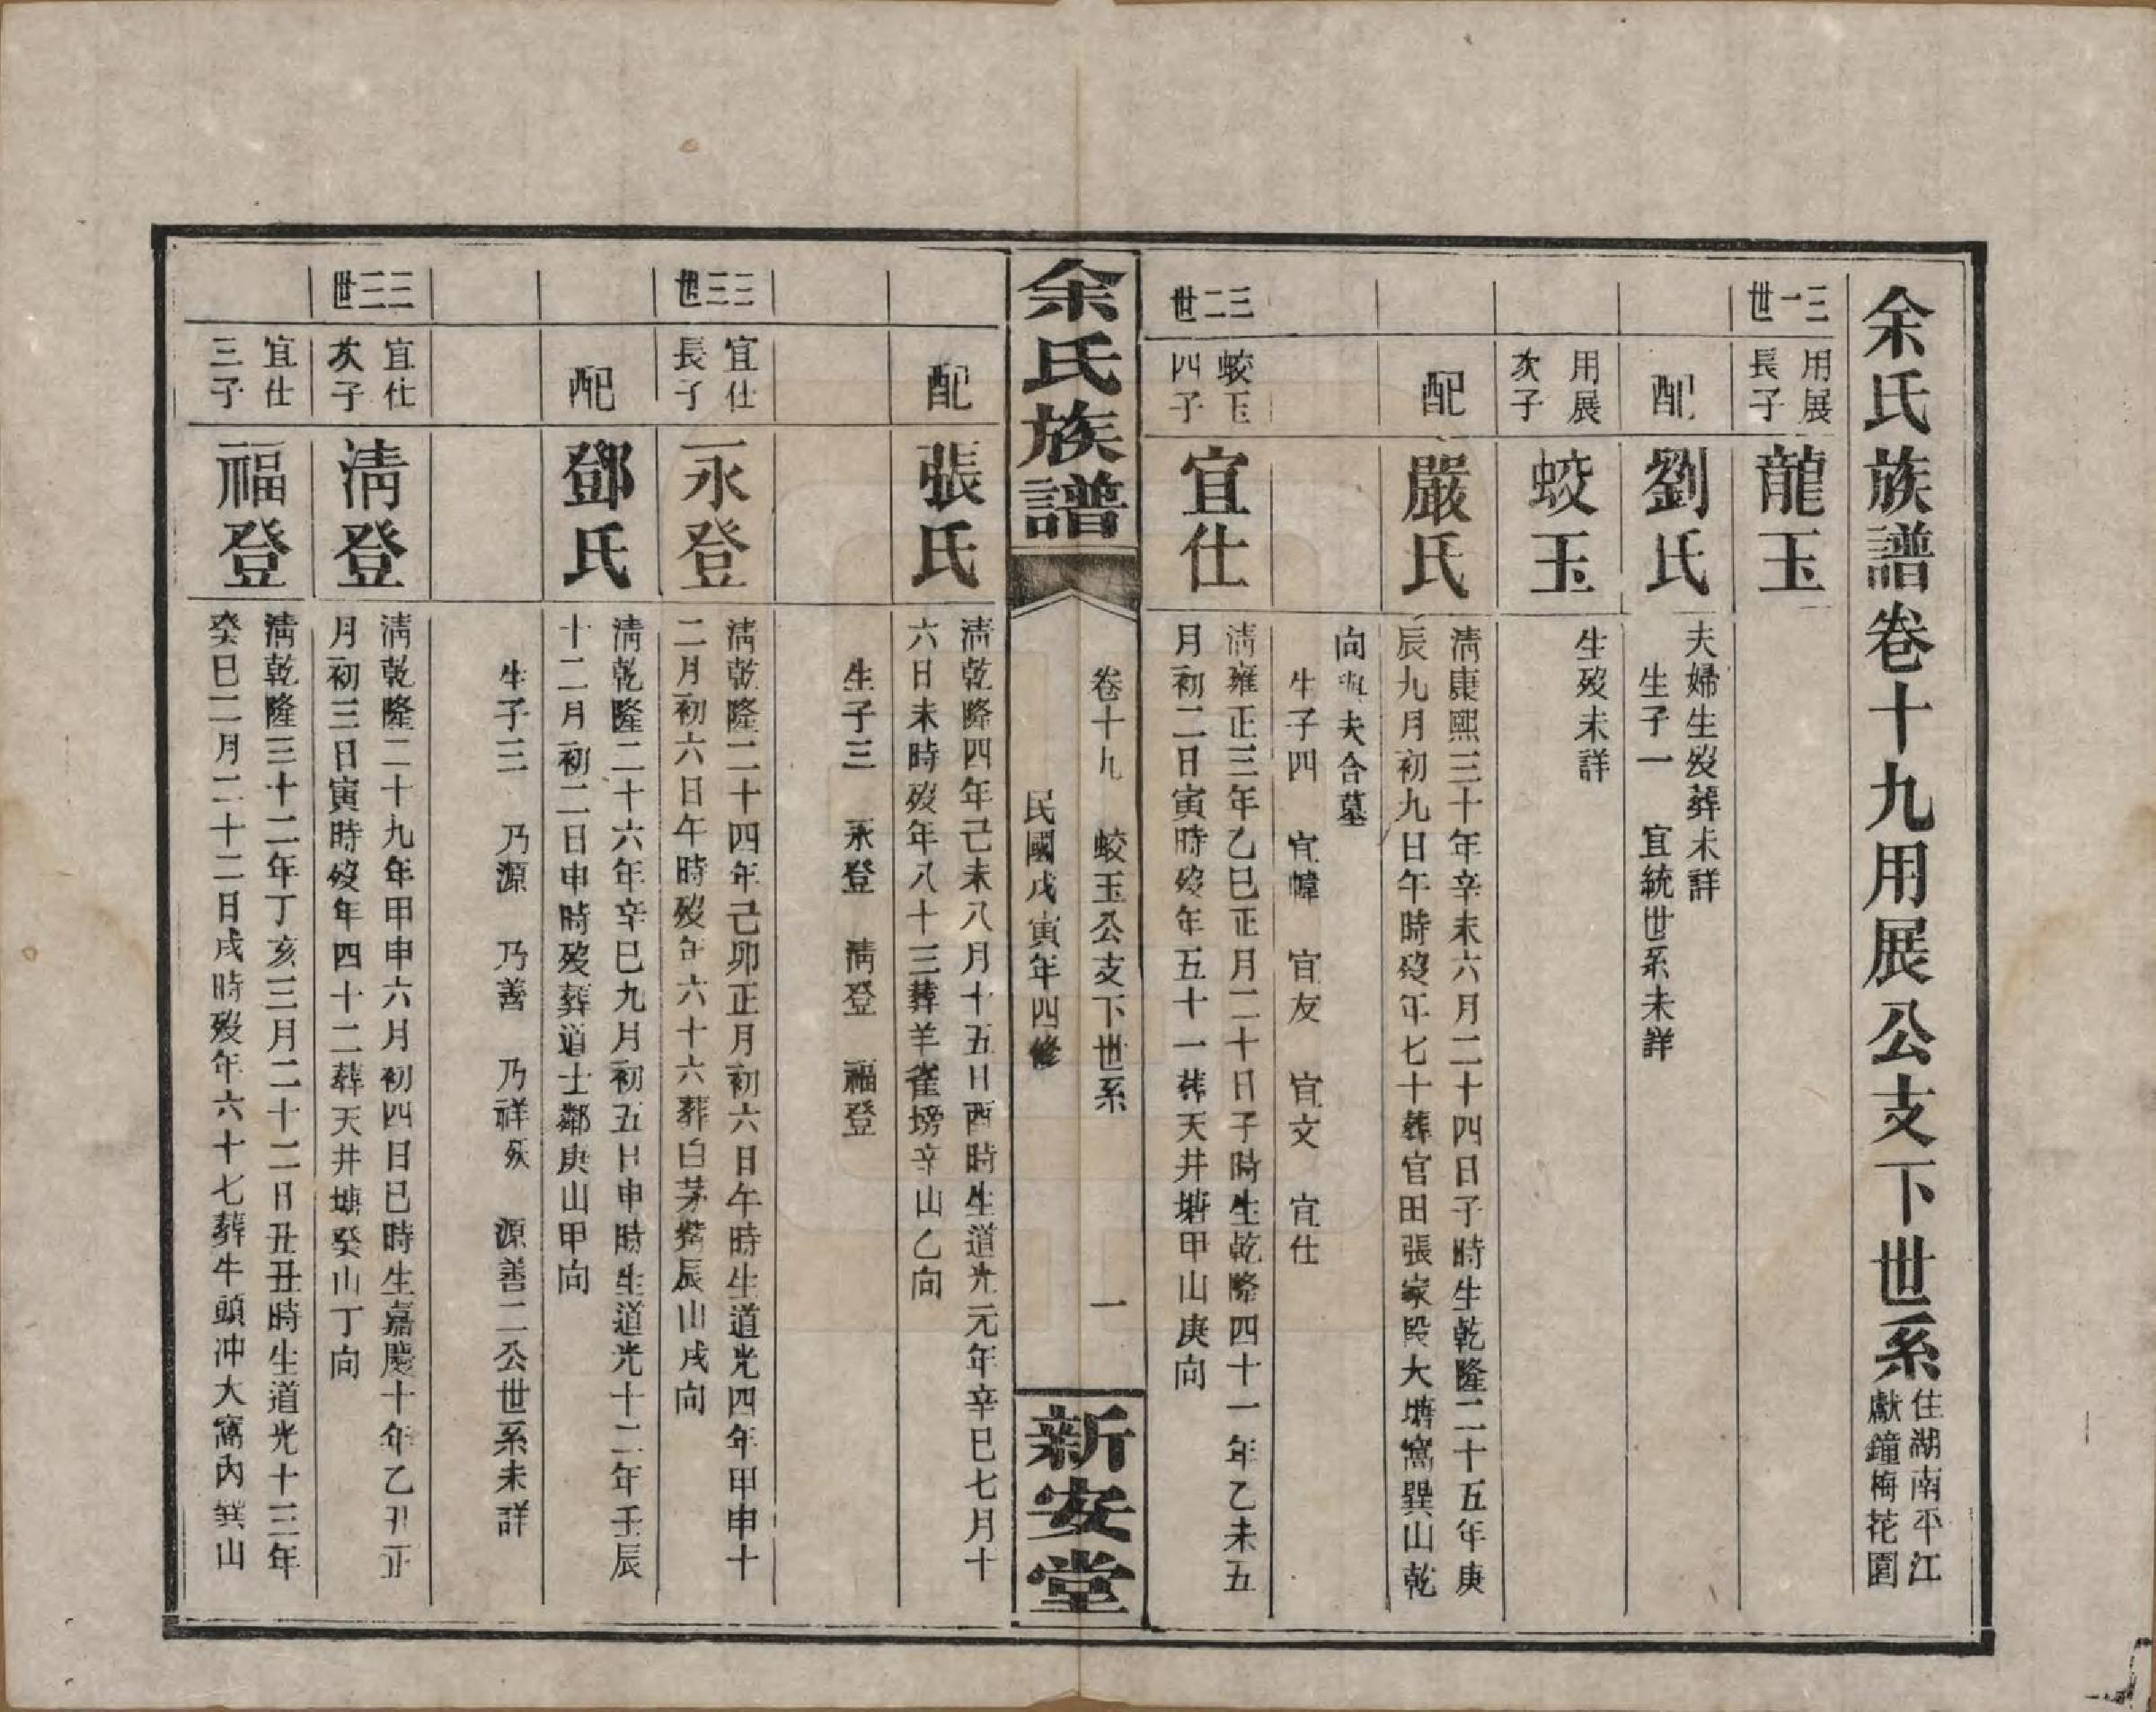 余氏族譜卷十九用展公支下世系
住湖南平江
獻鐘梅花園
三一世
用展
長子
龍玉
配
劉氏
夫婦生歿葬未詳
生子一　宜統世系未詳
用展
次子
蛟玉
生歿未詳
配
嚴氏
清康熙三十年辛未六月二十四日子時生乾隆二十五年庚
辰九月初九日午時歿年七十葬官田張家段大塘窩巽山乾
向與夫合墓
生子四　宜幃　宜友　宜文　宜仕
三二世
蛟玉
四子
宜仕
清雍正三年乙巳正月二十日子時生乾隆四十一年乙未五
月初二日寅時歿年五十一葬天井塘甲山庚向
余氏族譜
卷十九　蛟玉公支下世系　一
民國戊寅年四修
新安堂
配
張氏
清乾隆四年己未八月十五日酉時生道光元年辛巳七月十
六日未時歿年八十三葬羊雀塝辛山乙向
生子三　永登　清登　福登
三三世
宜仕
長子
永登
清乾隆二十四年己卯正月初六日午時生道光四年甲申十
二月初六日午時歿年六十六葬白茅辰山戌向
配
鄧氏
清乾隆二十六年辛巳九月初五日申時生道光十二年壬辰
十二月初二日申時歿葬道士鄰庚山甲向
生子三　乃源　乃善　乃祥殀　源善二公世系未詳
三三世
宜仕
次子
清登
清乾隆二十九年甲申六月初四日巳時生嘉慶十年乙丑正
月初三日寅時歿年四十二葬天井塘癸山丁向
宜仕
三子
福登
清乾隆三十二年丁亥三月二十二日丑丑時生道光十三年
癸巳二月二十二日戌時歿年六十七葬牛頭沖大窩內巽山